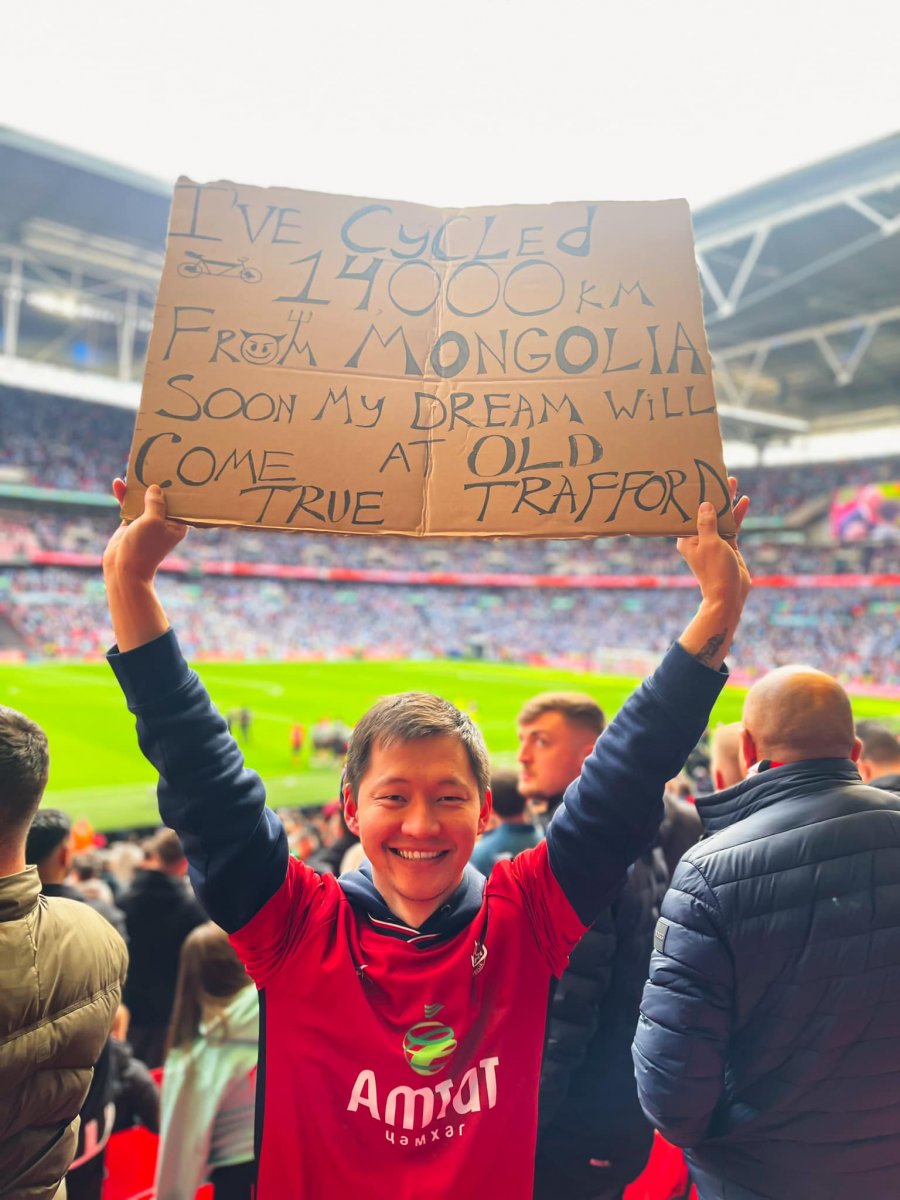 I'VE CYCLEd
14,000 KM
FROM MONGOLIA
SOON MY DREAM WILL
COME AT OLD
TRUE TRAFFORD
Амтат
цэмхэг